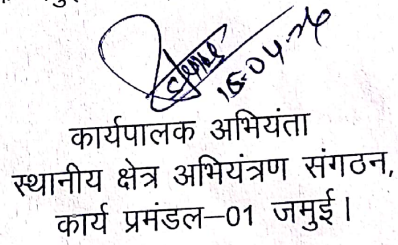 15-04-26
कार्यपालक अभियंता
स्थानीय क्षेत्र अभियंत्रण संगठन,
कार्य प्रमंडल–01 जमुई।